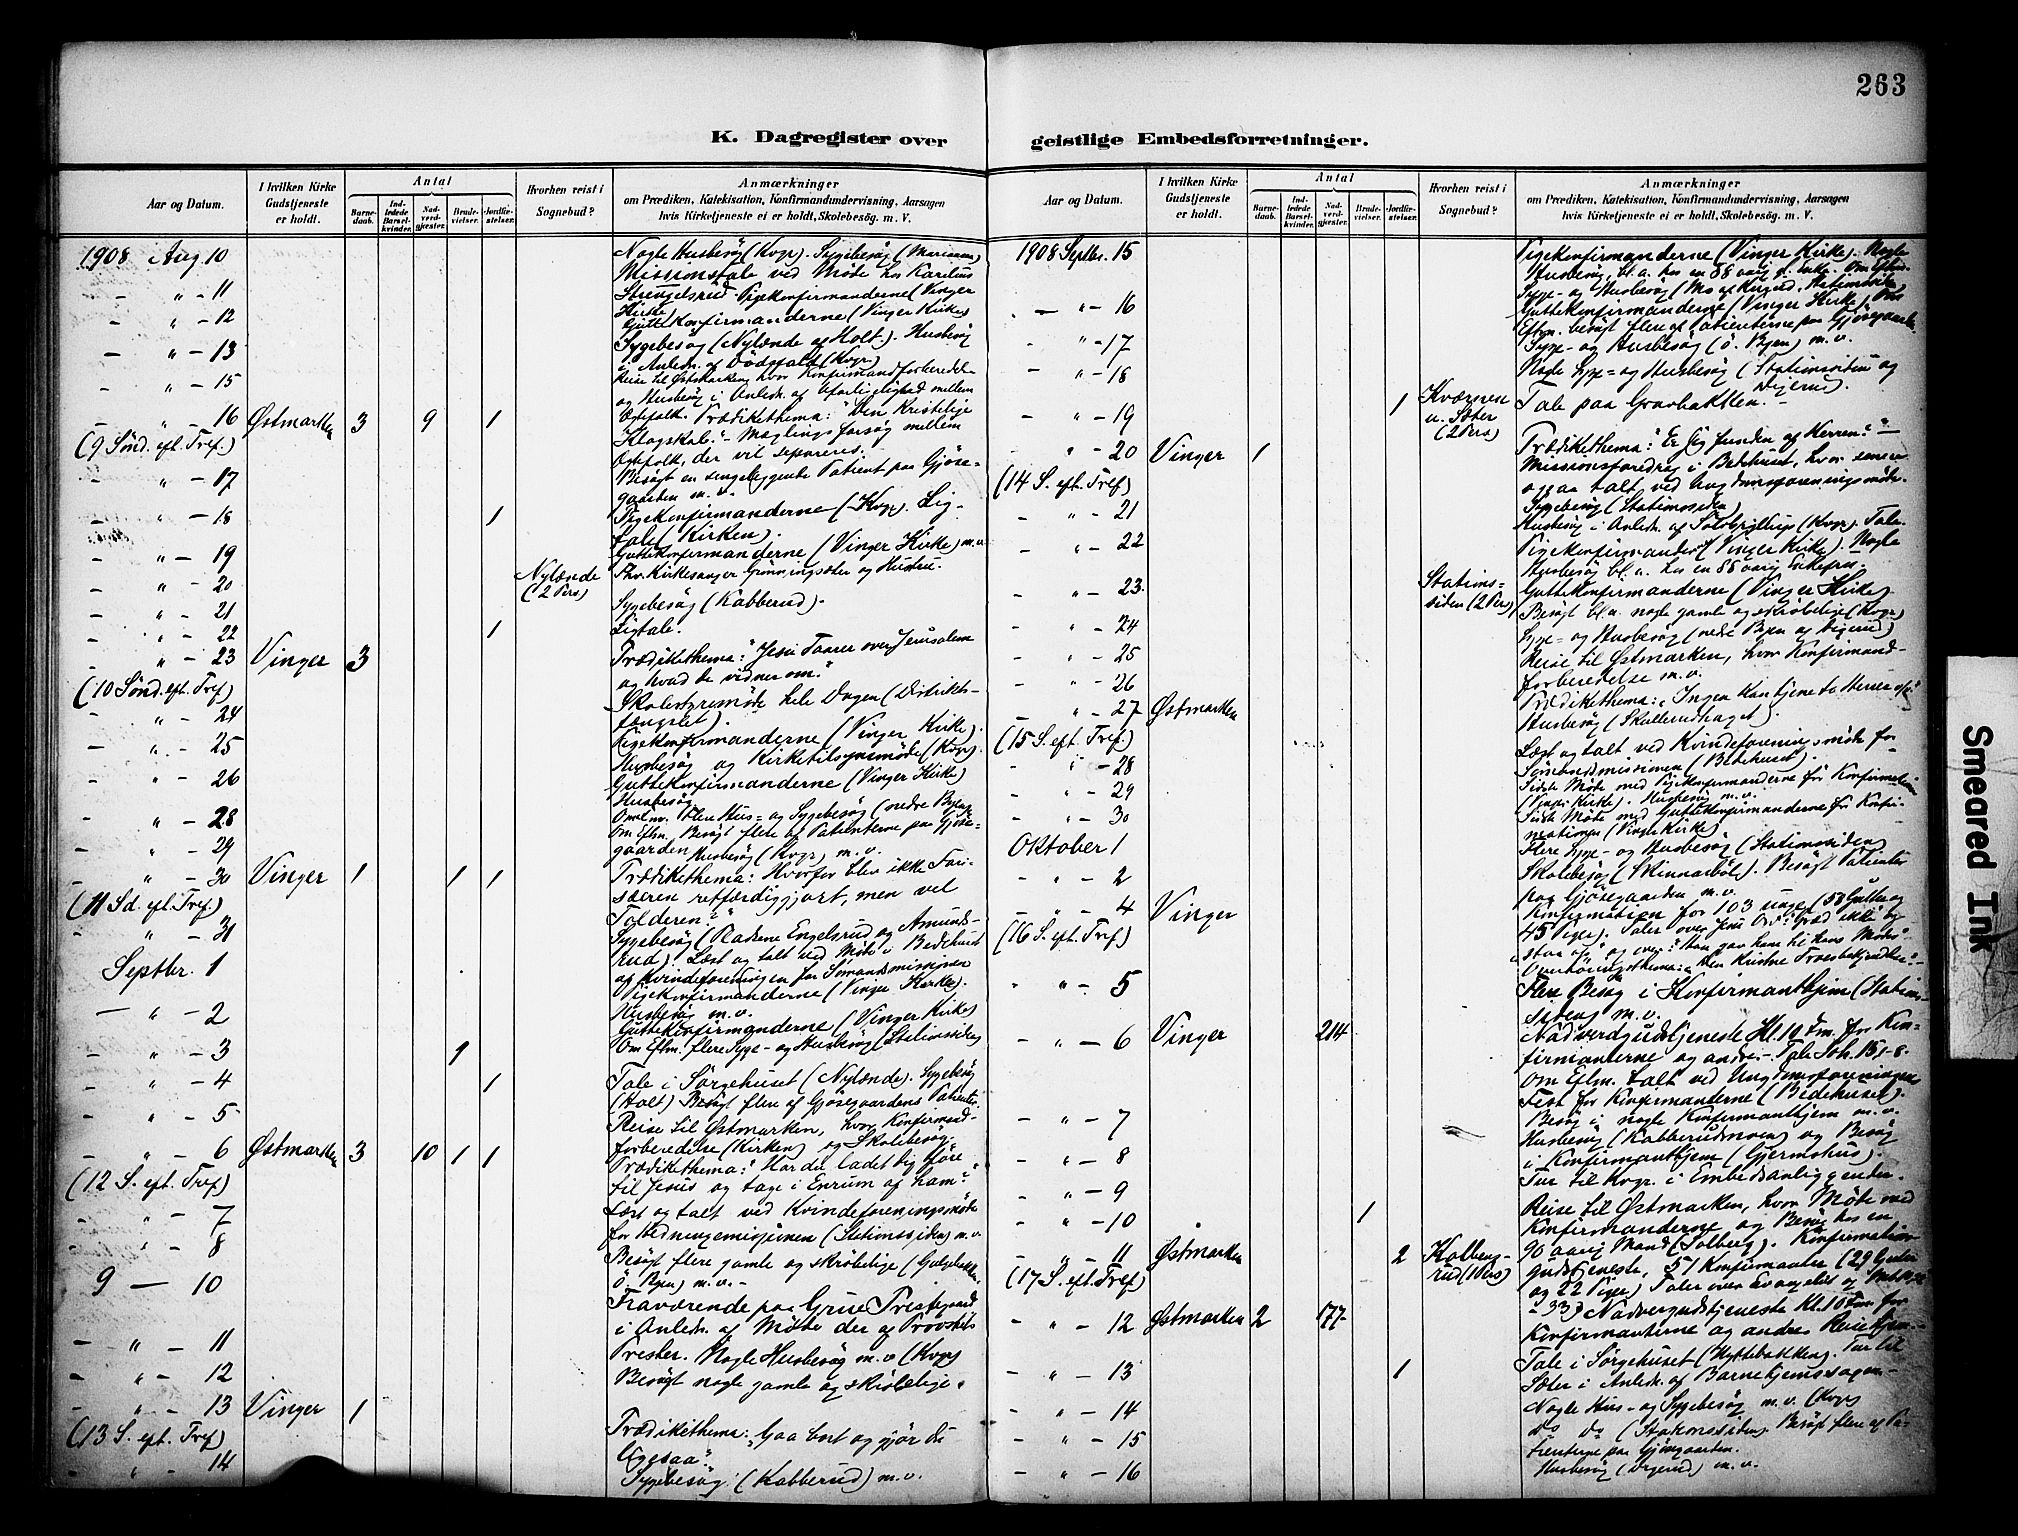 263
K. Dagregister over geistlige Embedsforretninger.
Aar og Datum.
I hvilken Kirke Gudstjeneste er holdt.
Antal
Barnedaab.
Indledede Barselkvinder.
Nadverdgjæster.
Brudevielser.
Jordfæstelser.
Hvorhen reist i Sognebud?
Anmærkninger
om Prædiken, Katekisation, Konfirmandundervisning, Aarsagen
hvis Kirketjeneste ei er holdt, Skolebesøg. m. V.
1908 Aug 10 Nogle Husbesøg (Kvgr). Sygebesøg
Missionstale ved Møde hos
" - 11 Pigekonfirmanderne (Vinger
Kirke)
" - 12 Guttekonfirmanderne (Vinger Kirke)
" - 13 Sygebesøg (Nylænde af Holt). Husbesøg
i Anledn. af Dødsfald (Kvgr.)
" - 15 Reise til Østmarken, hvor Konfirmandforberedel-
og Husbesøg i Anledn. af Uforligelighed mellem
" - 16 Østmarken 3 9 1 Ægtefolk. Prædikethema: "Den Kristelige
(9 Sønd. eft. Tref.) Klogskab." - Mæglingsforsøg mellem
Ægtefolk, der vil separeres.
" - 17 Besøgt en sengeliggende Patient paa Gjøse-
gaarden m. v.
" - 18 1 Pigekonfirmanderne (Kvgr). Lig-
tale (Kirken).
" - 19 Guttekonfirmanderne (Vinger Kirke) m.v.
" - 20 Nylænde (2 Pers) Kirkesanger Grønningsæter og Hustru.
" - 21 Sygebesøg (Kabberud).
" - 22 1 Ligtale.
" - 23 Vinger 3 Prædikethema: "Jesu Taarer over Jerusalem
(10 Sønd. eft. Tref) og hvad de vidner om."
" - 24 Skolestyremøde hele Dagen (Distrikts-
fængslet).
" - 25 Pigekonfirmanderne (Vinger Kirke).
Husbesøg og Kirketilsynsmøde (Kvgr).
" - 26 Guttekonfirmanderne (Vinger Kirke)
Husbesøg
" - 28 Flere Hus- og Sygebesøg (nedre Byen)
Om Eftm. Besøgt flere af Patienterne paa Gjøse-
" - 29 gaarden Husbesøg (Kvgr) m. v.
" - 30 Vinger 1 1 1 Prædikethema: Hvorfor blev ikke Fari-
(11 Sd. eft. Tref.) sæeren retfærdiggjort, men vel
Tolderen?"
" - 31 Sygebesøg (Pladsene Engelsrud og Amunds-
rud). Læst og talt ved Møde i Bedehuset
Septbr. 1 af Kvindeforeningen for Sømandsmissionen
Pigekonfirmanderne (Vinger Kirke).
Husbesøg m. v.
" - 2 Guttekonfirmanderne (Vinger Kirke)
" - 3 1 Om Eftm. flere Syge- og Husbesøg (Stationssiden)
" - 4 1 Tale i Sørgehuset (Nylænde). Sygebesøg
(Holt) Besøgt flere af Gjøsegaardens Patienter.
" - 5 Reise til Østmarken, hvor Konfirmand-
" - 6 Østmarken 3 10 1 1 forberedelse (Kirken) og Skolebesøg.
(12 S. eft. Tref) Prædikethema: "Har du ladet dig føre
til Jesus og tage i Enrum af ham?"
" - 7 Læst og talt ved Kvindeforeningsmøde
for Hedningemissionen (Stationssiden) m.v.
" - 8 Besøgt flere gamle og skrøbelige (
ö. Byen) m. v. -
9 - 10 Fraværende paa Grue Prestegaard
i Anledn. af Møde der af Provstiets
" 11 Prester. Nogle Husbesøg m. v (Kvgr)
" - 12 Besøgt nogle gamle og skrøbelige.
" - 13 Vinger 1 Prædikethema: "Gaa bort og gjør du
(13 S. eft. Tref) ligesaa".
" - 14 Sygebesøg (Kabberud) m. v.
Aar og Datum.
I hvilken Kirke Gudstjeneste er holdt.
Antal
Barnedaab.
Indledede Barselkvinder.
Nadverdgjæster.
Brudevielser.
Jordfæstelser.
Hvorhen reist i Sognebud?
Anmærkninger
om Prædiken, Katekisation, Konfirmandundervisning, Aarsagen
hvis Kirketjeneste ei er holdt, Skolebesøg. m. V.
1908 Septbr. 15 Pigekonfirmanderne (Vinger Kirke). Nogle
Husbesøg, bl. a. hos en 88 aarig
Syge- og Husbesøg
" - 16 Guttekonfirmanderne (Vinger Kirke). Om
Eftm. besøgt flere af Patienterne paa Gjøsegaarden
" - 17 Syge- og Husbesøg (ö. Byen) m. v.
" - 18 Nogle Syge- og Husbesøg (Stationssiden og
" - 19 1 Kværnen u. Sæter (2 Pers) Tale paa Gravbakken.
" - 20 Vinger 1 Prædikethema: "Er Jeg funden af Herren?"
(14 S. eft. Tref) Missionsforedrag i Bedehuset, hvor senere
ogsaa talt ved Ungdomsforeningsmøde.
" - 21 Sygebesøg (Stationssiden)
Husbesøg i Anledn. af (Kvgr). Tale.
" - 22 Pigekonfirmander (Vinger Kirke). Nogle
Husbesøg bl. a. hos en 88 aarig Enkefru.
" - 23 Stationssiden (2 Pers) Guttekonfirmanderne (Vinger Kirke)
Besøgt bl.a. nogle gamle og skrøbelige (Kvgr)
" - 24 Syge- og Husbesøg (nedre Byen
" - 25 Reise til Østmarken, hvor Konfirmand-
" - 26 forberedelse m. v.
" - 27 Østmarken Prædikethema: "Ingen kan tjene to Herrer
(15 S. eft. Tref.) Husbesøg (Skullerudhaget).
" - 28 Læst og talt ved Kvindeforeningsmøde for
Sømandsmissionen (Bedehuset).
" - 29 Sidste Møde med Pigekonfirmanderne før Konfirmationen
(Vinger Kirke). Husbesøg m. v.
" - 30 Sidste Møde med Guttekonfirmanderne før Konfir-
mationen (Vinger Kirke)
Oktober 1 Flere Syge- og Husbesøg (Stationssiden)
" - 2 Skolebesøg (Skinnarbøl). Besøgt Patienter
paa Gjøsegaarden m. v.
" - 4 Vinger Konfirmation for 103 unge (58 Gutter og
(16 S. eft. Tref.) 45 Piger). Taler over Jesu Ord: "Græd ikke"
Den Kristne
" - 5 Flere Besøg i Konfirmanthjem (Stations-
m. v.
" - 6 Vinger 214 Nadverdgudstjeneste Kl. 10 Fm. for Kon-
firmanterne og andre. - Tale Joh. 15, 1-8.
Om Eftm. talt ved Ungdomsforeningens
Fest for Konfirmanterne (Bedehuset).
" - 7 Besøg i nogle Konfirmanthjem m. v.
Husbesøg (Kabberudmoen) og Besøg
" - 8 i Konfirmanthjem (Gjermshus).
" - 9 Tur til Kvgr. i Embedsanliggender.
" - 10 1 Reise til Østmarken, hvor Møde med
Konfirmanderne og Besøg hos en
" " - 11 Østmarken 2 Kolbengrud (1 Pers) 90 aarig Mand (Solberg). Konfirmation
(17 S. eft. Tref) gudstjeneste, 51 Konfirmanter (29 Gutter
og 22 Piger) Taler over Evangeliet og
" - 12 Østmarken 2 177 - 33) Nadvergudstjeneste Kl. 10 Fm. for
Konfirmanterne og andre.
" - 13 1 Tale i Sørgehuset (Hyttebakken). Tur til
Sæter i Anledn. af Barnehjemssagen -
" - 14 Nogle Hus- og Sygebesøg m. v. (Kvgr)
" - 15 do do (Stationssiden). Besøgt flere af Pa-
tienterne paa Gjøsegaarden.
" - 16 Husbesøg m. v.
Smeared Ink